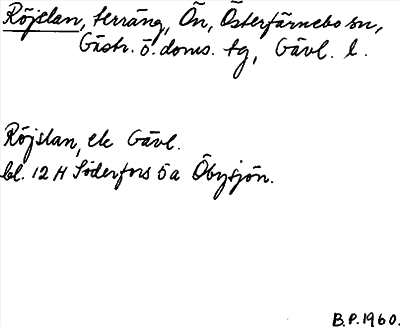 Röjslan, terräng, Ön, Österfärnebo sn,
Gästr. ö. doms. tg, Gävl. l.
Röjslan, ek Gävl.
bl. 12 H Söderfors 5a Öbysjön.
B.P. 1960.